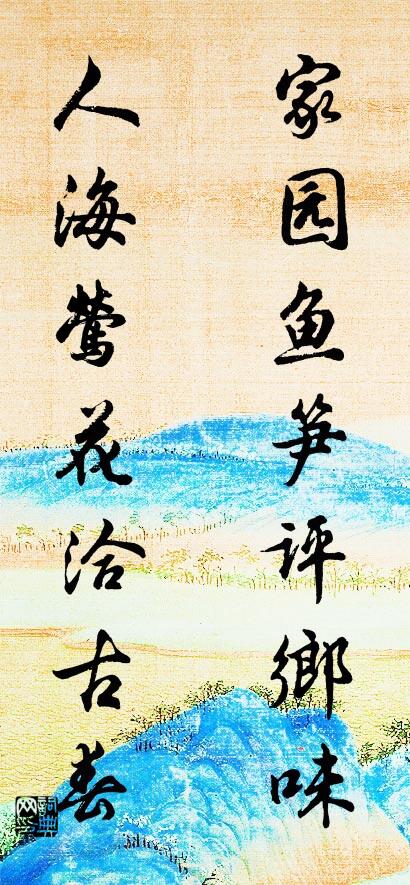 家园鱼笋评鄉味
人海莺花洽古春